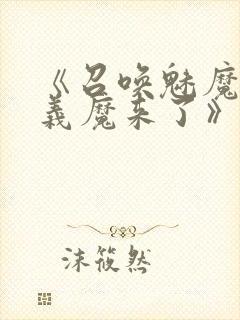 《召唤魅魔
義魔来了》
沫筱然